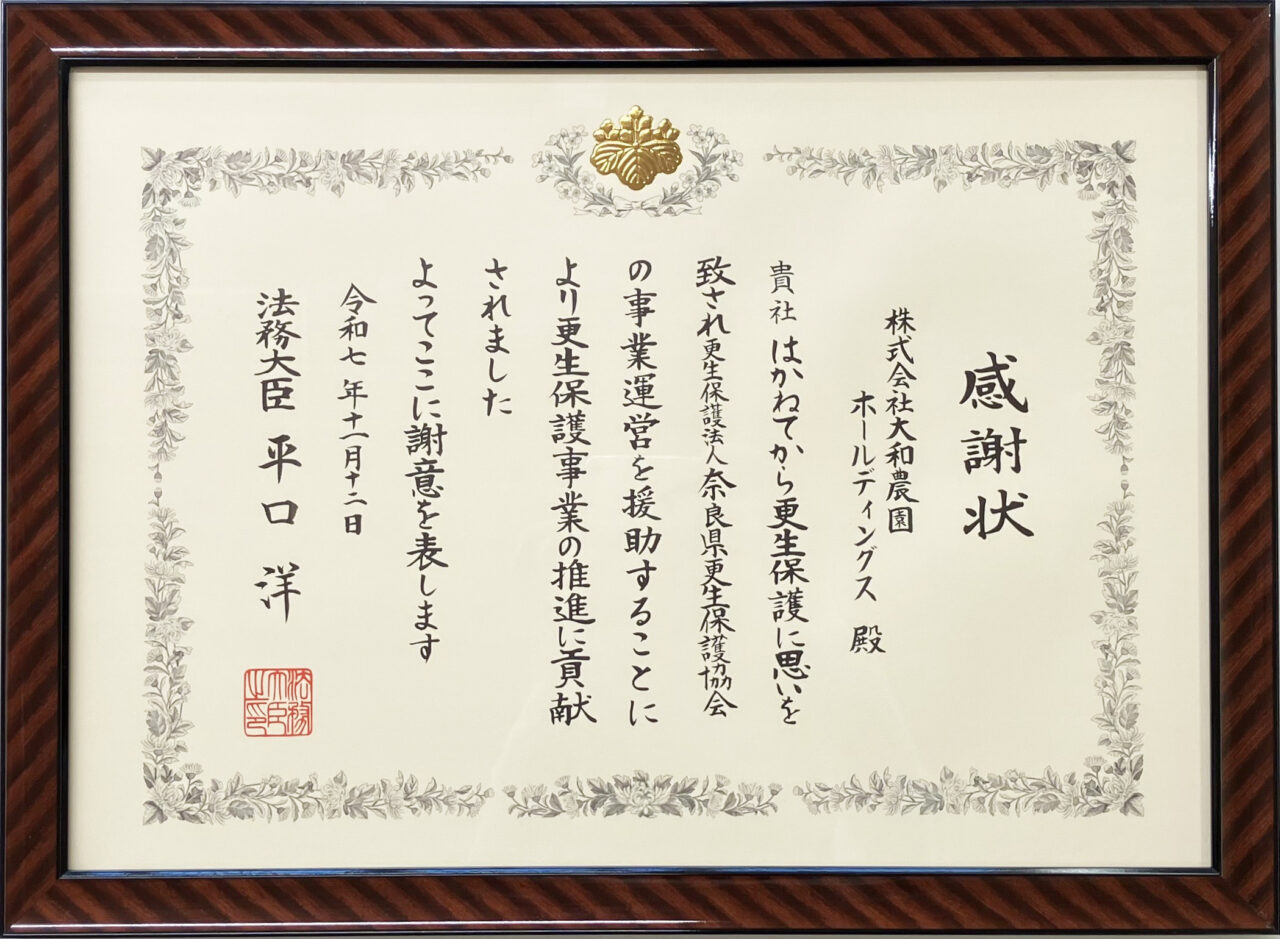 感謝状
株式会社大和農園
ホールディングス 殿
貴社はかねてから更生保護に思いを
致され更生保護法人奈良県更生保護協会
の事業運営を援助することに
より更生保護事業の推進に貢献
されました
よってここに謝意を表します
令和七年十一月十二日
法務大臣 平口洋
法務
大臣
之印